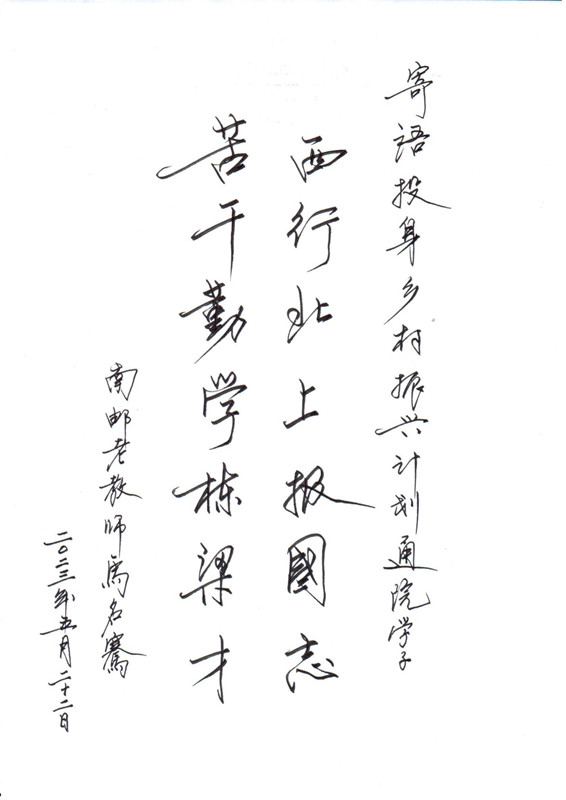 寄语投身乡村振兴计划通院学子
西行北上报國志
苦干勤学栋梁才
南邮老教师馬名騫
二〇二三年五月二十二日